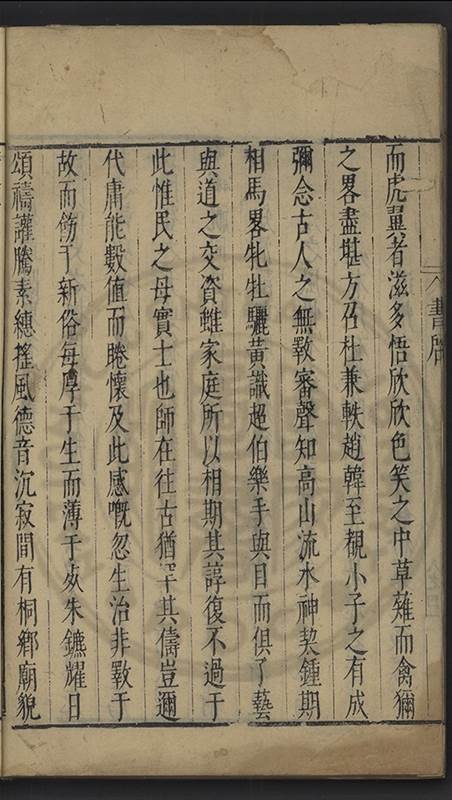 而虎翼者滋多悟欣欣色笑之中草薙而禽獮
之畧盡堪方召杜兼軼趙韓至覩小子之有成
彌念古人之無斁審聲知高山流水神契鍾期
相馬畧牝牡驪黃識超伯樂手與目而俱了藝
與道之交資雖家庭所以相期其諄復不過于
此惟民之母實士也師在往古猶罕其儔豈邇
代庸能數值而睠懷及此感慨忽生治非斁于
故而飭于新俗每厚于生而薄于歿朱鑣耀日
頌禱讙騰素繐搖風德音沉寂間有桐鄉廟貌
書啟